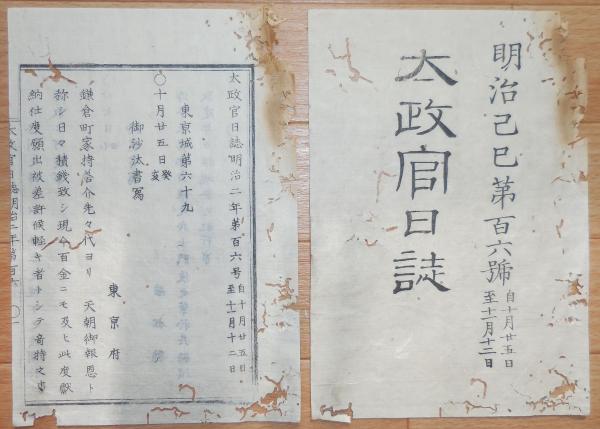 明治己巳第百六號
自十月廿五日
至十一月十二日
太政官日誌
太政官日誌明治二年第百六号
自十月廿五日
至十一月十二日
東京城第六十九
〇十月廿五日癸亥
御沙汰書寫
東京府
鎌倉町家持善介先々代ヨリ 天朝御報恩ト
称シ日々積銭致シ現今百金ニモ及ヒ此度獻
納仕度願出被差許候軽キ者トシテ奇特之事
太政官日誌明治二年第百六 〇一